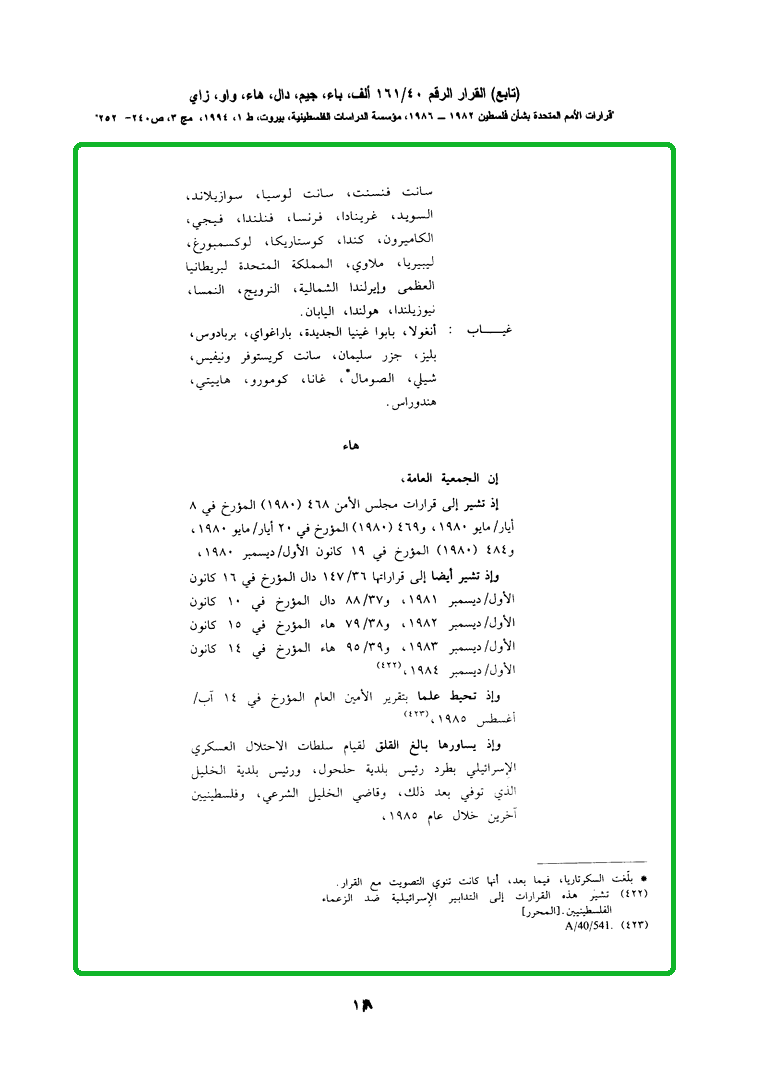 (تابع) القرار الرقم ١٦١/٤٠ ألف، باء، جيم، دال، هاء، واو، زاي
"قرارات الأمم المتحدة بشأن فلسطين ١٩٨٢ ــ ١٩٨٦، مؤسسة الدراسات الفلسطينية، بيروت، ط ١، ١٩٩٤، مج ٣، ص٢٤٠- ٢٥٢"
سانت فنسنت، سانت لوسيا، سوازيلاند،
السويد، غرينادا، فرنسا، فنلندا، فيجي،
الكاميرون، كندا، كوستاريكا، لوكسمبورغ،
ليبيريا، ملاوي، المملكة المتحدة لبريطانيا
العظمى وإيرلندا الشمالية، النرويج، النمسا،
نيوزيلندا، هولندا، اليابان.
غيـــاب : أنغولا، بابوا غينيا الجديدة، باراغواي، بربادوس،
بليز، جزر سليمان، سانت كريستوفر ونيفيس،
شيلي، الصومال*، غانا، كومورو، هاييتي،
هندوراس.
هاء
إن الجمعية العامة،
إذ تشير إلى قرارات مجلس الأمن ٤٦٨ (١٩٨٠) المؤرخ في ٨
أيار/مايو ١٩٨٠، و٤٦٩ (١٩٨٠) المؤرخ في ٢٠ أيار/مايو ١٩٨٠،
و٤٨٤ (١٩٨٠) المؤرخ في ١٩ كانون الأول/ديسمبر ١٩٨٠،
وإذ تشير أيضا إلى قراراتها ١٤٧/٣٦ دال المؤرخ في ١٦ كانون
الأول/ديسمبر ١٩٨١، و٨٨/٣٧ دال المؤرخ في ١٠ كانون
الأول/ديسمبر ١٩٨٢، و٧٩/٣٨ هاء المؤرخ في ١٥ كانون
الأول/ديسمبر ١٩٨٣، و٩٥/٣٩ هاء المؤرخ في ١٤ كانون
الأول/ديسمبر ١٩٨٤،(٤٢٢)
وإذ تحيط علما بتقرير الأمين العام المؤرخ في ١٤ آب/
أغسطس ١٩٨٥،(٤٢٣)
وإذ يساورها بالغ القلق لقيام سلطات الاحتلال العسكري
الإسرائيلي بطرد رئيس بلدية حلحول، ورئيس بلدية الخليل
الذي توفي بعد ذلك، وقاضي الخليل الشرعي، وفلسطينيين
آخرين خلال عام ١٩٨٥،
* بلّغت السكرتاريا، فيما بعد، أنها كانت تنوي التصويت مع القرار.
(٤٢٢) تشير هذه القرارات إلى التدابير الإسرائيلية ضد الزعماء
الفلسطينيين. [المحرر]
(٤٢٣) A/40/541.